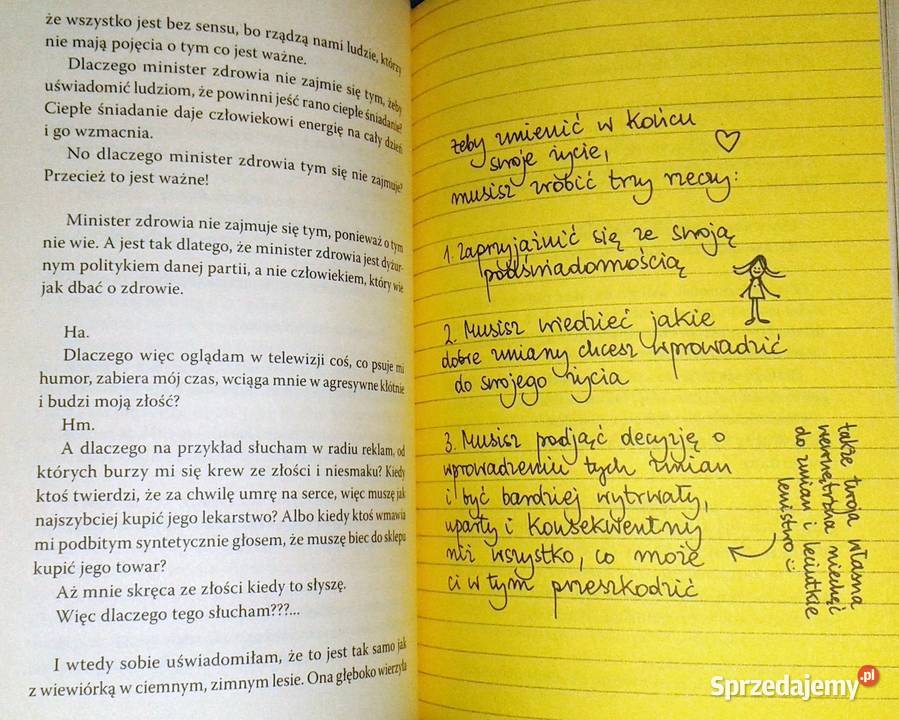 że wszystko jest bez sensu, bo rządzą nami ludzie, którzy
nie mają pojęcia o tym co jest ważne.
Dlaczego minister zdrowia nie zajmie się tym, żeby
uświadomić ludziom, że powinni jeść rano ciepłe śniadanie?
Ciepłe śniadanie daje człowiekowi energię na cały dzień
i go wzmacnia.
No dlaczego minister zdrowia tym się nie zajmuje?
Przecież to jest ważne!
Minister zdrowia nie zajmuje się tym, ponieważ o tym
nie wie. A jest tak dlatego, że minister zdrowia jest dyżur-
nym politykiem danej partii, a nie człowiekiem, który wie
jak dbać o zdrowie.
Ha.
Dlaczego więc oglądam w telewizji coś, co psuje mi
humor, zabiera mój czas, wciąga mnie w agresywne kłótnie
i budzi moją złość?
Hm.
A dlaczego na przykład słucham w radiu reklam, od
których burzy mi się krew ze złości i niesmaku? Kiedy
ktoś twierdzi, że za chwilę umrę na serce, więc muszę jak
najszybciej kupić jego lekarstwo? Albo kiedy ktoś wmawia
mi podbitym syntetycznie głosem, że muszę biec do sklepu
kupić jego towar?
Aż mnie skręca ze złości kiedy to słyszę.
Więc dlaczego tego słucham???...
I wtedy sobie uświadomiłam, że to jest tak samo jak
z wiewiórką w ciemnym, zimnym lesie. Ona głęboko wierzyła
żeby zmienić w końcu
swoje życie,
musisz zrobić trzy rzeczy:
1. Zaprzyjaźnić się ze swoją
podświadomością
2. Musisz wiedzieć jakie
dobre zmiany chcesz wprowadzić
do swojego życia
3. Musisz podjąć decyzję o
wprowadzeniu tych zmian
i być bardziej wytrwały,
uparty i konsekwentny
niż wszystko, co może
ci w tym przeszkodzić
także twoja własna
wewnętrzna niechęć
do zmian i leciutkie
lenistwo
Sprzedajemy.pl